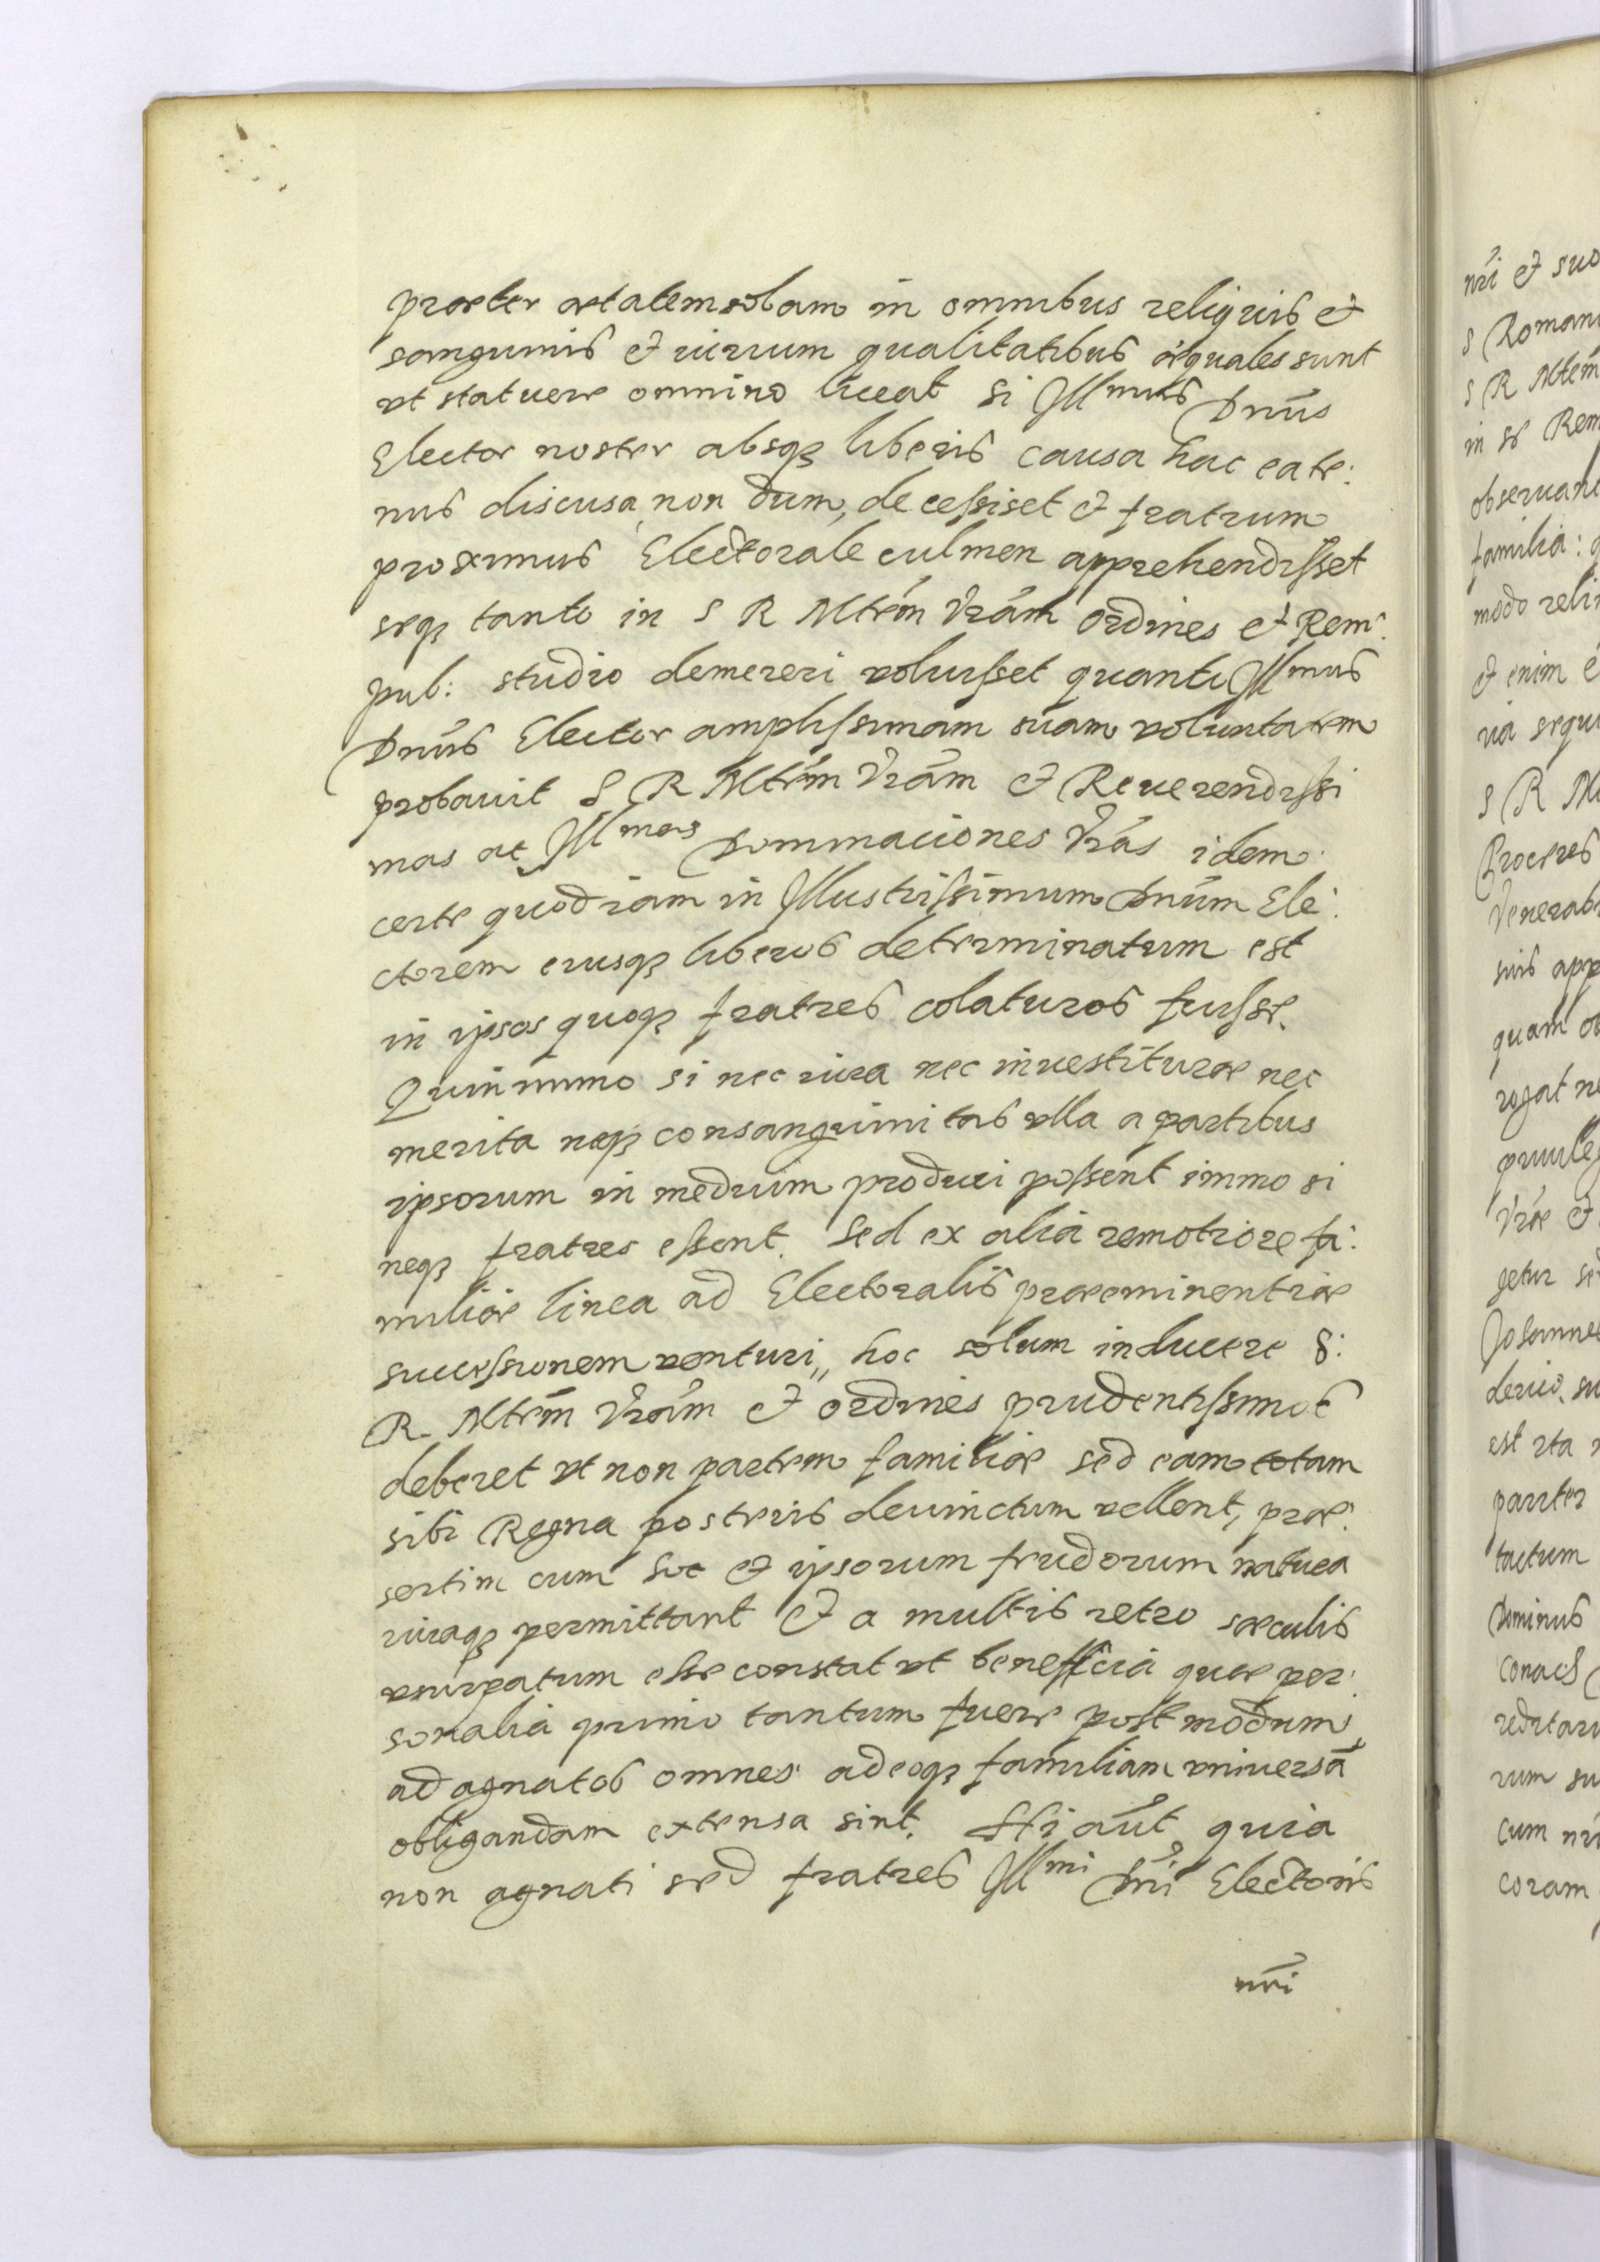 praeter aetatem solam in omnibus reliquis et
sanguinis et iurium qualitatibus aequales sunt
ut statuere omnino liceat si Jllmus Dnus
Elector noster absq liberis causa hac eate:
nus discusa non dum, decessiset et fratrum
proximus Electorale culmen apprehendisset
seq tanto in S R Mtem Vram ordines et Rem:
pub: studio demereri voluisset quanti Jllmus
Dnus Elector amplissimam suam voluntatem
probavit S R Mtem Vram et Reverendissi
mas ac Jllmas Dominaciones Vras idem
certe quod iam in Jllustrissimum Dnum Ele:
ctorem eiusq liberos determinatum est
in ipsos quoq fratres colaturos fuisse.
Quinimmo si nec iura nec investiturae nec
merita neq consanguinitas ulla a partibus
ipsorum in medium produci possent immo si
neq fratres essent. Sed ex alia remotiore fa:
miliae linea ad Electoralis praeeminentiae
successionem venturi,, hoc solum inducere S:
R. Mtem Vram et ordines prudentissimos
deberet ut non partem familiae sed eam totam
sibi Regna posteris devinctum vellent, prae:
sertim cum hoc et ipsorum feudorum natura
iuraq permittant et a multis retro saeculis
usurpatum esse constat ut beneficia quae per:
sonalia primo tantum fuere postmodum
ad agnatos omnes adeoq familiam universa
obligandam extensa sint. Hi aut quia
non agnati sed fratres Jllmi Dni Electoris
nri
nri et suo
S Roman
S R Mtem
in se Rem
observan
familia:
modo reli
et enim
via sequ
S R M
Proceres
Venerab
suis app
quam
rogat ne
privileg
Vrae et
getur se
Johannes
derico su
est ita
pariter
tactum
Dominus
reditari
rum su
cum nri
coram